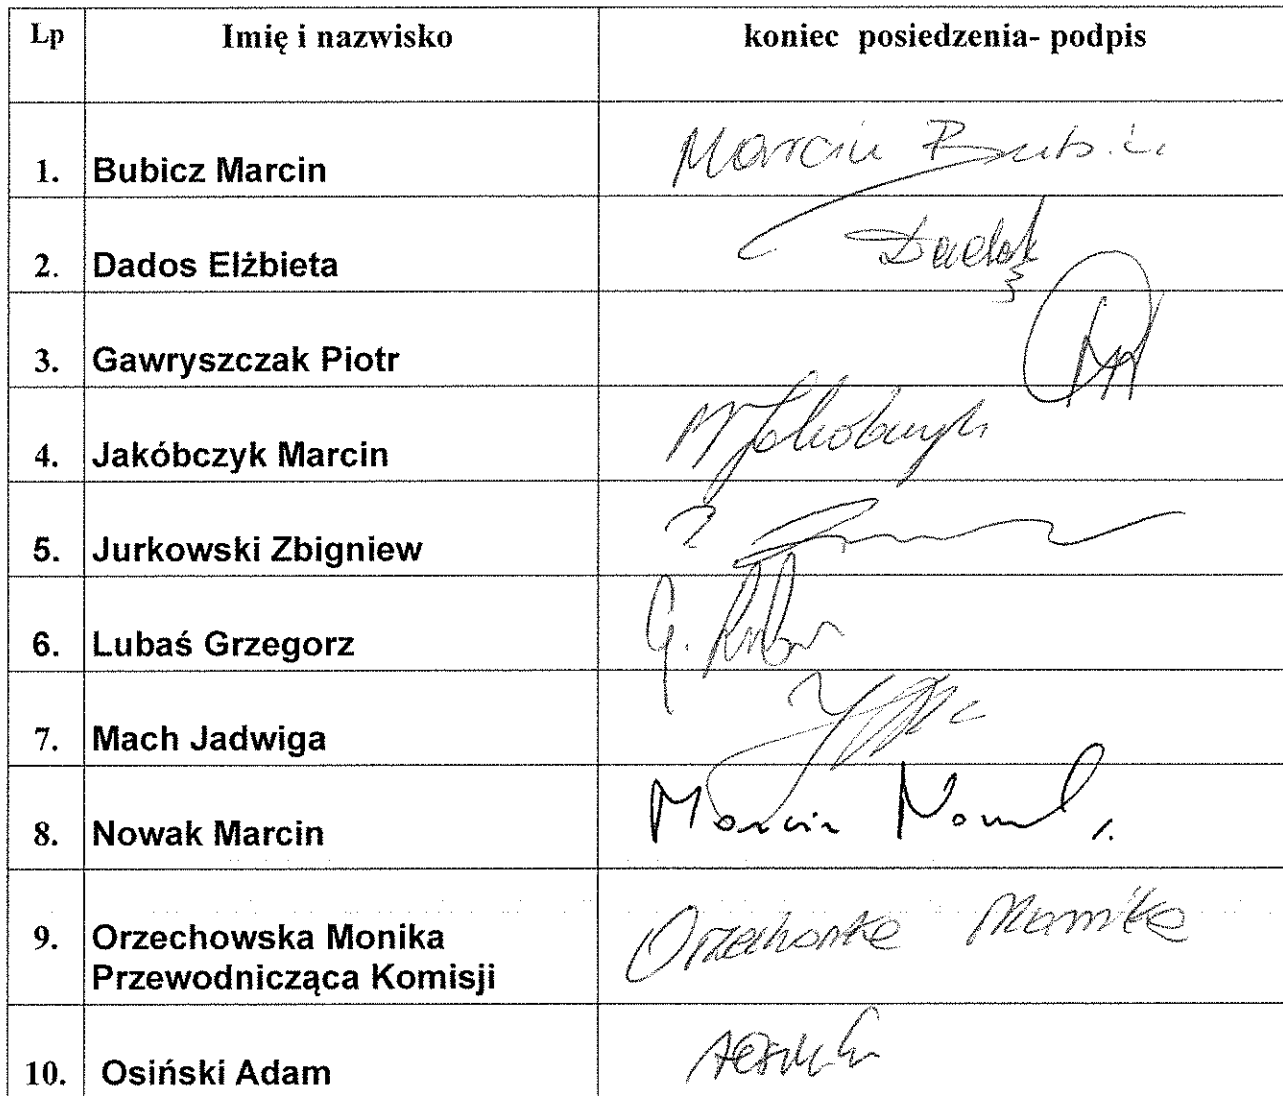 Lp Imię i nazwisko koniec posiedzenia- podpis
1. Bubicz Marcin Marcin
2. Dados Elżbieta
3. Gawryszczak Piotr
4. Jakóbczyk Marcin MJakóbczyk
5. Jurkowski Zbigniew
6. Lubaś Grzegorz G.
7. Mach Jadwiga
8. Nowak Marcin Marcin Nowak
9. Orzechowska Monika Orzechowska Monika
Przewodnicząca Komisji
10. Osiński Adam